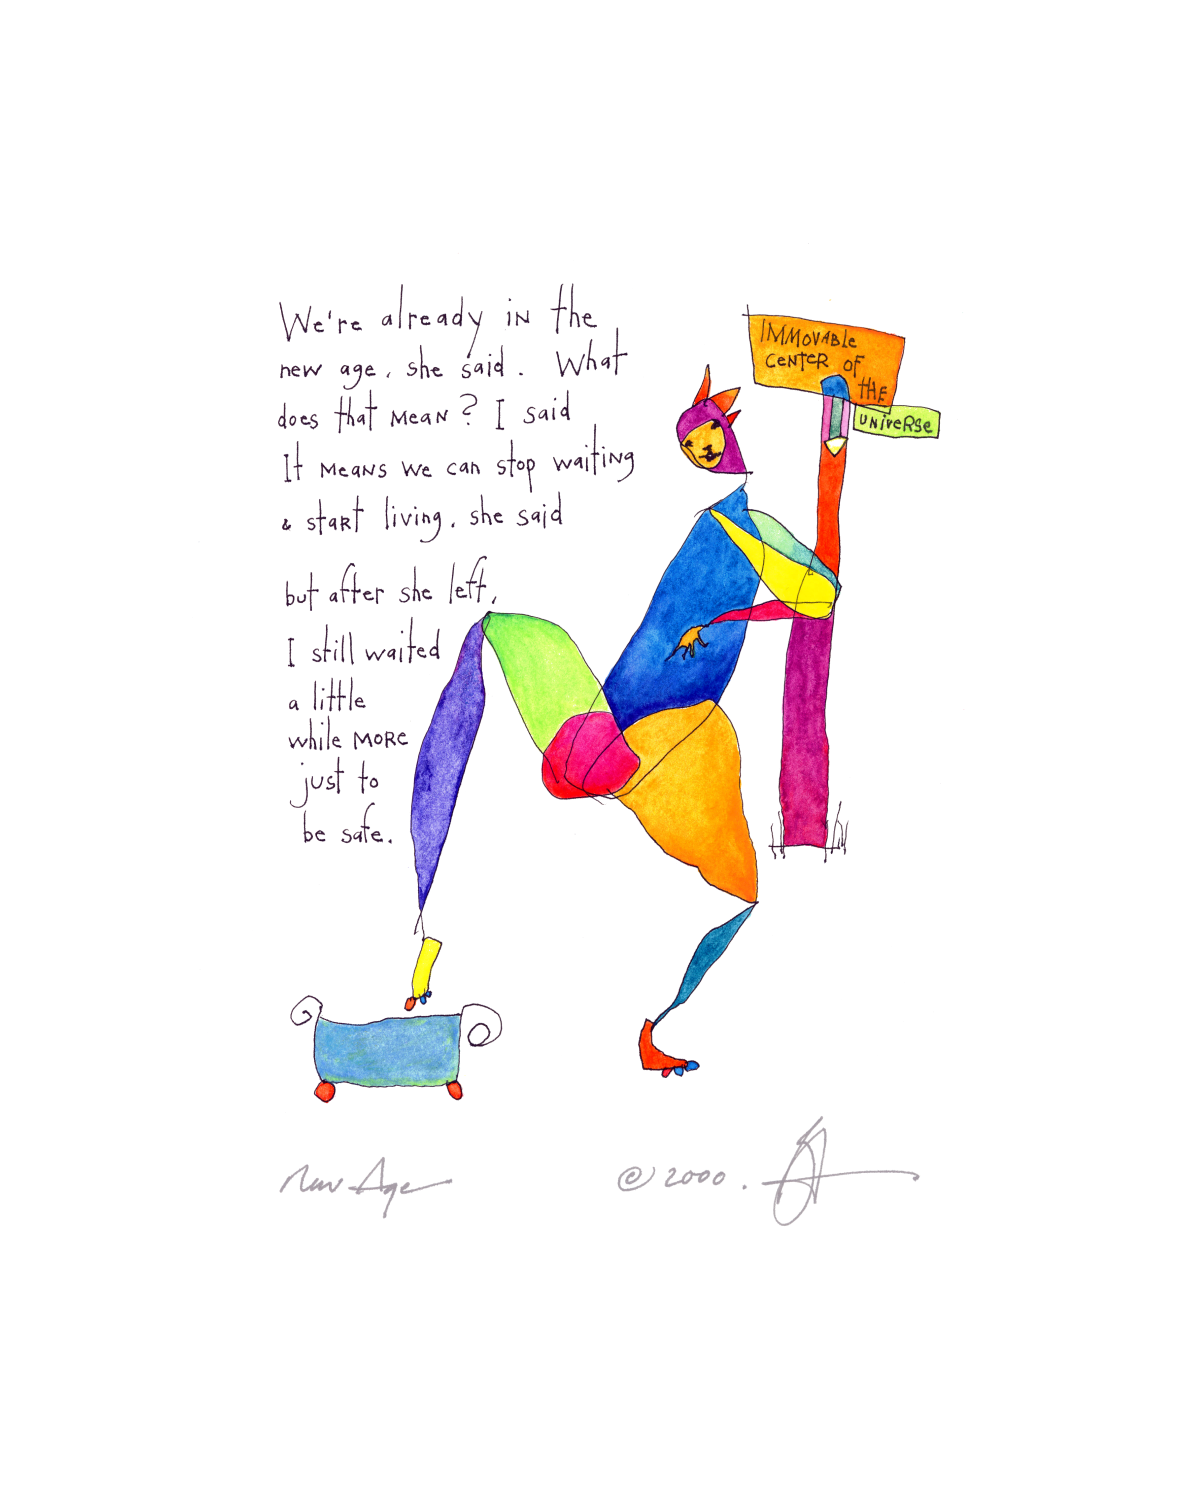 We're already in the
new age, she said. What
does that mean? I said
It means we can stop waiting
& start living, she said
but after she left,
I still waited
a little
while more
just to
be safe.
IMMOVABLE
CENTER OF
THE
UNIVERSE
New Age
© 2000.